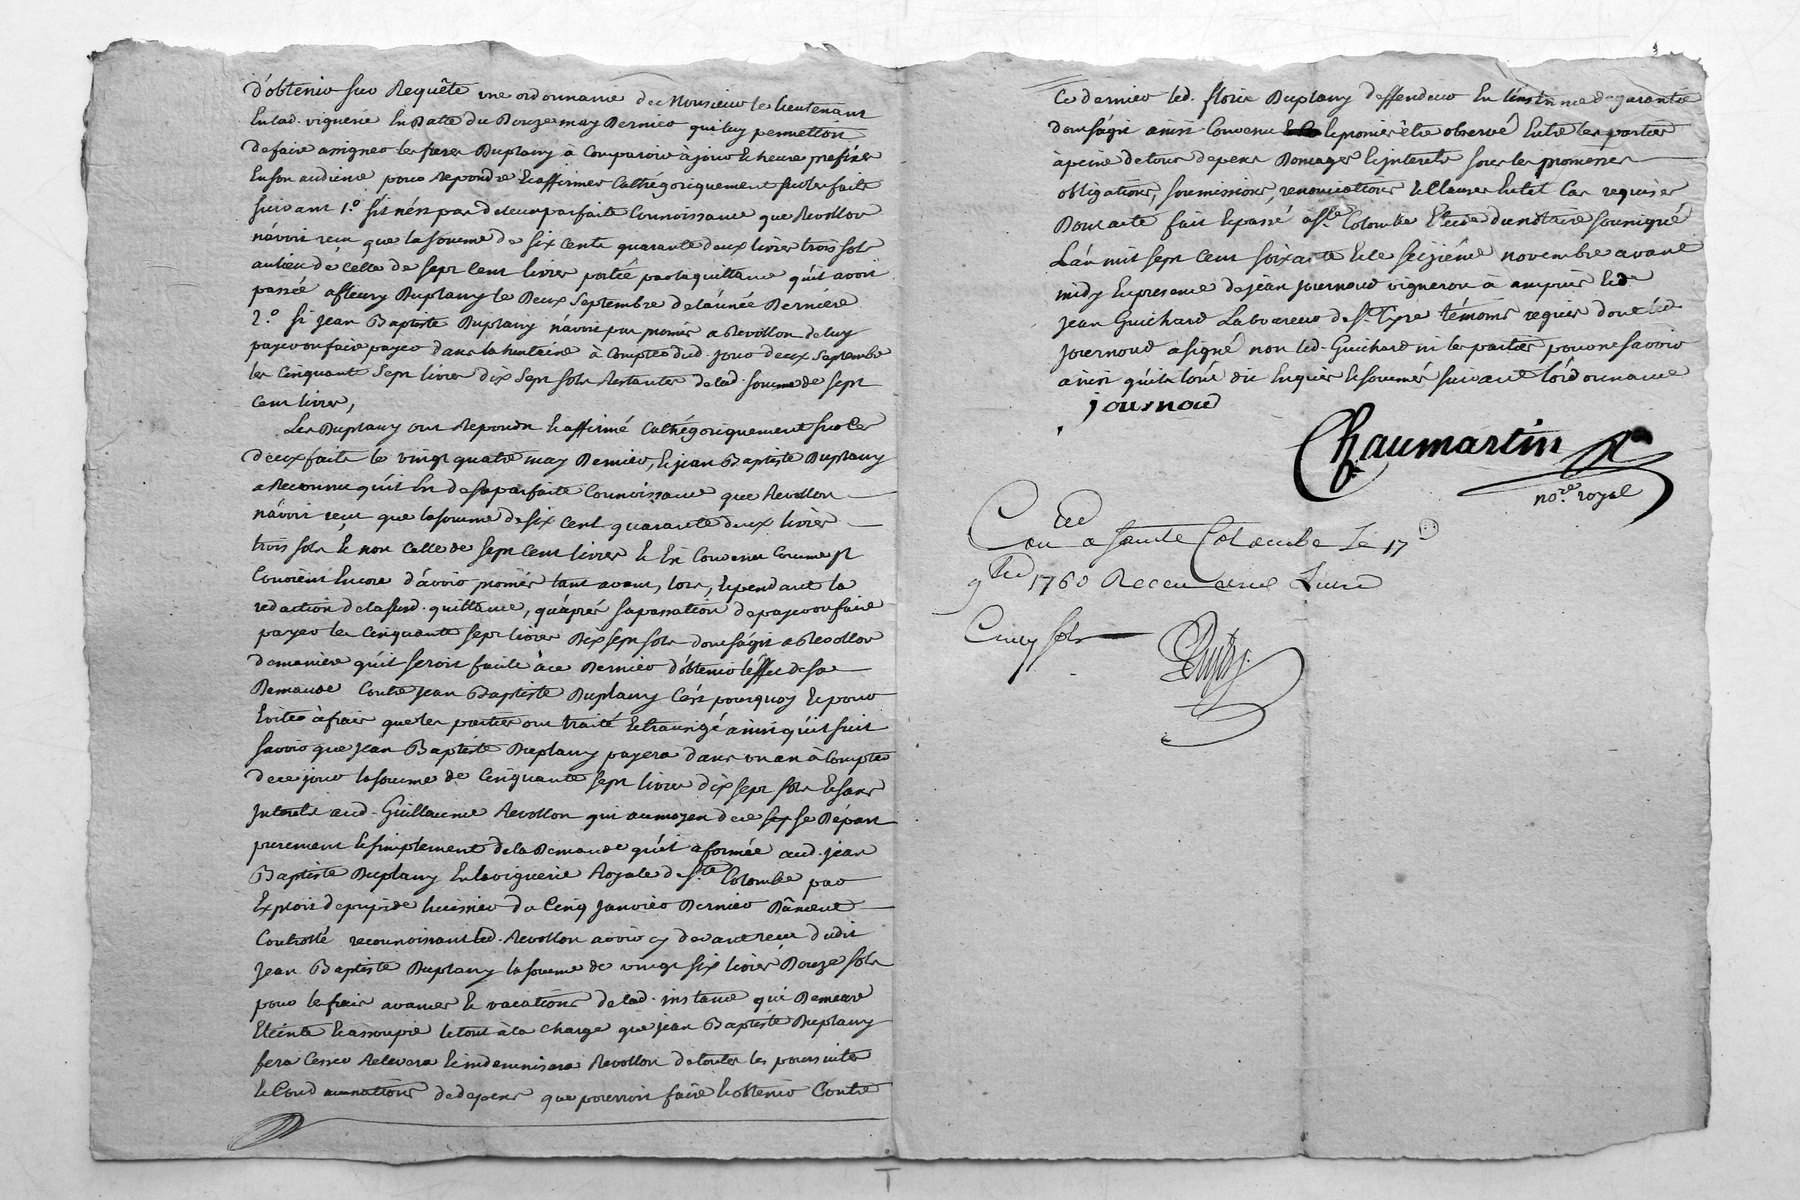 d'obtenir sur Requête une ordonnance de Monsieur le lieutenant
En lad. viguerie En Datte du Douze may Dernier qui luy permettoit
de faire assigner les freres Duplany à Comparoir à jour & heure prefixes
En son audience pour repondre & affirmer Cathégoriquement sur les faits
suivant 1.º s'il n'ést pas de leur parfaite Connoissance que Revollon
n'avoit reçu que la somme de six cents quarante deux livres trois sols
au lieu de célle de sept Cent livres portée par la quittance qu'il avoit
passée a fleury Duplany le Deux Septembre de lánnée Derniere
2.º si jean Baptiste Duplany n'avoit pas promis a Revollon de luy
payer ou faire payer dans la huitaine à Compter dud. jour deux septembre
les Cinquante sept livres dix sept sols Restantes de lad. somme de sept
cent livres,
Les Duplany ont Repondu & affirmé Cathégoriquement sur les
deux faits le vingt quatre may Dernier, & jean Baptiste Duplany
a Reconnu qu'il Est de sa parfaite Connoissance que Revollon
n'avoit reçu que la somme de six cent quarante deux livres
trois sols & non Celle de sept Cent livres & Est Convenu Comme Il
Convient Encore d'avoir promis tant avant, lors, & pendant la
redaction de la susd. quittance, qu'après sa passation de payer ou faire
payer les Cinquante sept livres Dix sept sols dont s'agit a Revollon
de maniere qu'il seroit facile à ce Dernier d'obtenir l'éffet de sa
Demande Contre jean Baptiste Duplany C'est pourquoy & pour
Eviter à frais que les parties ont traité & transigé ainsi qu'il suit
savoir que jean Baptiste Duplany payera dans un an à Compter
de ce jour la somme de Cinquante sept livres dix sept sols & sans
Interets aud. Guillaume Revollon qui au moyen de ce se Départ
purement & simplement de la Demande qu'il a formée aud. jean
Baptiste Duplany En la viguerie Royale de Ste. Colombe par
Exploit huissier du Cinq Janvier Dernier Dûment
Controllé reconnoissant led. Revollon avoir cy devant reçu dudit
jean Baptiste Duplany la somme de vingt six livres Douze sols
pour les frais avances & vacations de lad. instance qui Demeure
Eteinte & assoupie le tout à la charge que jean Baptiste Duplany
fera Cesser Relevera & indemnisera Revollon de toutes les poursuites
& Condamnations de depens que pourroit faire & obtenir Contre
Ce dernier led. fleury Duplany deffendeur En l'instance de garantie
dont s'agit ainsi Convenu & promis être observé Entre les parties
à peine de tous depens Domages & interets sous les promesses
obligations, soumissions, renonciations & Clauses En tel Cas requises
Dont acte fait & passé à Ste. Colombe Etude du notaire soussigné
L'an mil sept Cent soixante & le seizième novembre avant
midy En presence de jean journoud vigneron à ampuis & de
jean Guichard Laboureur de St. Cyre témoins requis dont led.
journoud a signé non led. Guichard ni les parties pour ne savoir
ainsi qu'ils l'ont dit Enquis & sommés suivant l'ordonnance
journoud
Chaumartin
no.re royal
Con.lé a sainte Colombe Le 17
9bre 1760 Receu une Livre
Cinq sols